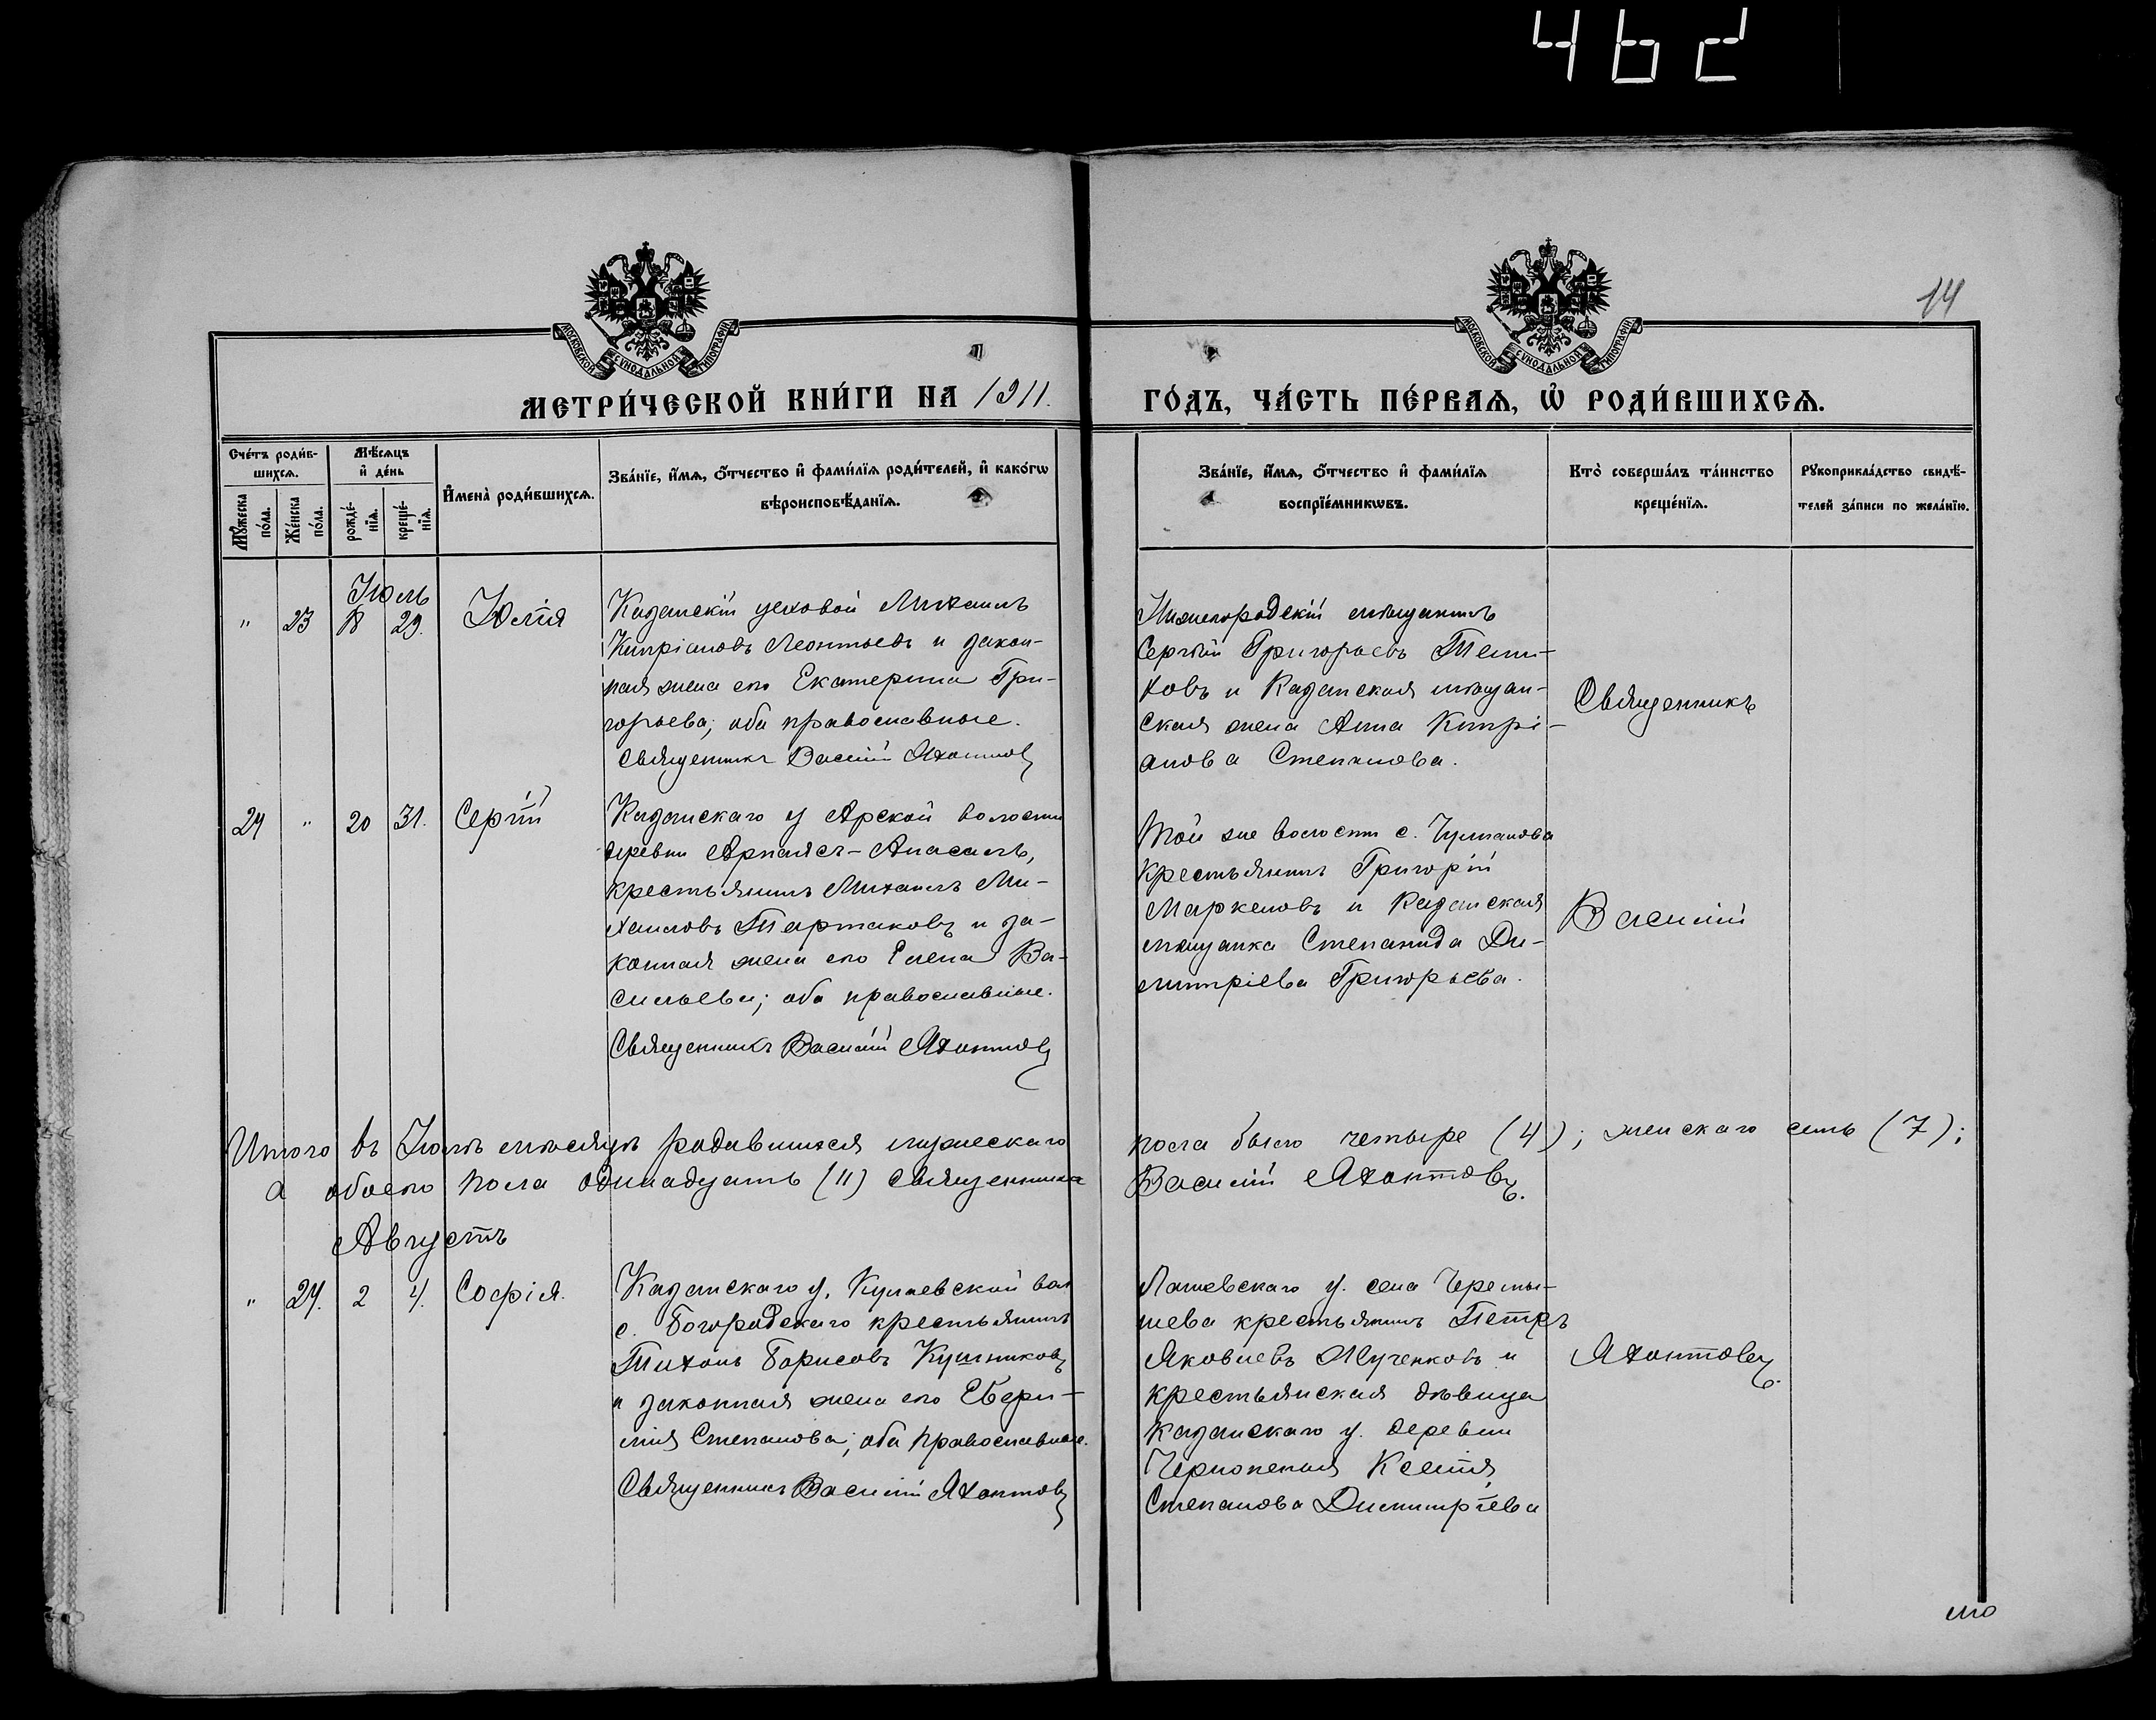 462
14
МОСКОВСКОЙ СУНОДАЛЬНОЙ ТИПОГРАФІИ
МОСКОВСКОЙ СУНОДАЛЬНОЙ ТИПОГРАФІИ
МЕТРИ́ЧЕСКОЙ КНИ́ГИ НА 1911.
ГО́ДЪ, ЧА́СТЬ ПЕ́РВАѦ, Ѡ҆ РОДИ́ВШИХСѦ.
Сче́тъ роди́в-
шихсѧ.
Мѣ́сѧцъ
и҆ де́нь
Мꙋ́жеска
по́ла.
Же́нска
по́ла.
рожде́-
нїѧ.
креще́-
нїѧ.
И҆мена̀ роди́вшихсѧ.
Зва́нїе, и҆́мѧ, ѻ҆́тчество и҆ фами́лїѧ роди́телей, и҆ како́гѡ
вѣроисповѣ́данїѧ.
Зва́нїе, и҆́мѧ, ѻ҆́тчество и҆ фами́лїѧ
воспрїе́мникѡвъ.
Кто̀ соверша́лъ та́инство
креще́нїѧ.
Рꙋкоприкла́дство свидѣ́-
телей за́писи по жела́нїю.
Іюль
" 23 18 29. Юлія
Казанскій цеховой Михаилъ
Кипріановъ Леонтьевъ и закон-
ная жена его Екатерина Гри-
горьева; оба православные.
Священникъ Василій Яхонтовъ
Нижегородскій мѣщанинъ
Сергѣй Григорьевъ
ковъ и Казанская мѣщан-
ская жена Анна Кипрі-
анова Степанова.
Священникъ
24 " 20 31. Сергій
Казанскаго у Арской волости
деревни
крестьянинъ Михаилъ Ми-
хаиловъ Тартаковъ и за-
конная жена его Елена Ва-
сильева; оба православные.
Священникъ Василій Яхонтовъ
Той же волости с. Чулпанова
крестьянинъ Григорій
Маркеловъ и Казанская
мѣщанка Степанида Ди-
митріева Григорьева.
Василій
Итого въ Іюлѣ мѣсяцѣ родившихся мужескаго
пола было четыре (4); женскаго семь (7);
а обоего пола одинадцать (11) Священникъ
Василій Яхонтовъ.
Августъ
" 24. 2 4. Софія.
Казанскаго у. Кулаевской вол
с. Богородскаго крестьянинъ
Тихонъ Борисовъ Кушниковъ
и законная жена его
Степанова; оба православные.
Священникъ Василій Яхонтовъ
Лаишевскаго у. села Черемы-
шева крестьянинъ Петръ
Яковлевъ Жученковъ и
крестьянская дѣвица
Казанскаго у. деревни
Ксенія
Степанова Димитріева
Яхонтовъ.